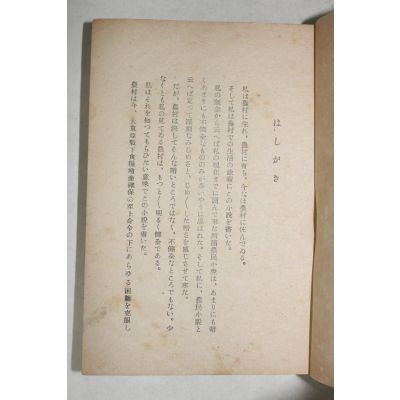 はしがき
私は農村に生れ、農村に育ち、今なほ農村に住んでゐる。
そして私は農村での生活の余暇にこの小説を書いた。
私の観念から云へば私の現在までに読んで来た所謂農民小説は、あまりにも暗
くあまりにも不健全なもののみが多いやうに思はれた。そして私に、農民小説と
云へば定って深刻なみじめさと、じめ／＼した暗さを感じさせて来た。
だが、農村は決してそんな暗いところではなく、不健全なところでもない。少
なくとも私の見てゐる農村は、もつと／＼明るく健全である。
私はそれを知つてもらひたい意味でこの小説を書いた。
農村は今、大東亜戦下食糧増産確保の至上命令の下にあらゆる困難を克服し